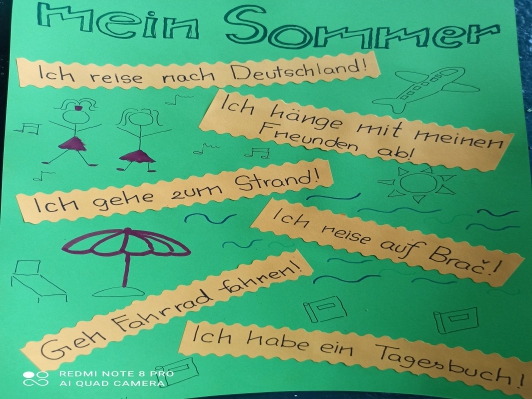 mein Sommer
Ich reise nach Deutschland!
Ich hänge mit meinen
Freunden ab!
Ich gehe zum Strand!
Ich reise auf Brač!
Geh Fahrrad fahren!
Ich habe ein Tagesbuch!
REDMI NOTE 8 PRO
AI QUAD CAMERA